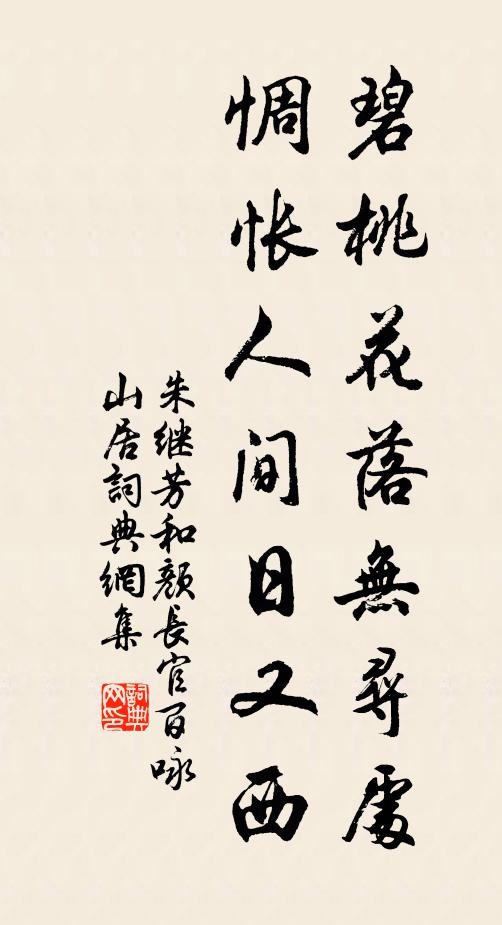 碧桃花落無尋處
惆怅人间日又西
朱继芳和颜長官百咏
山居詞典網集
詞典网印